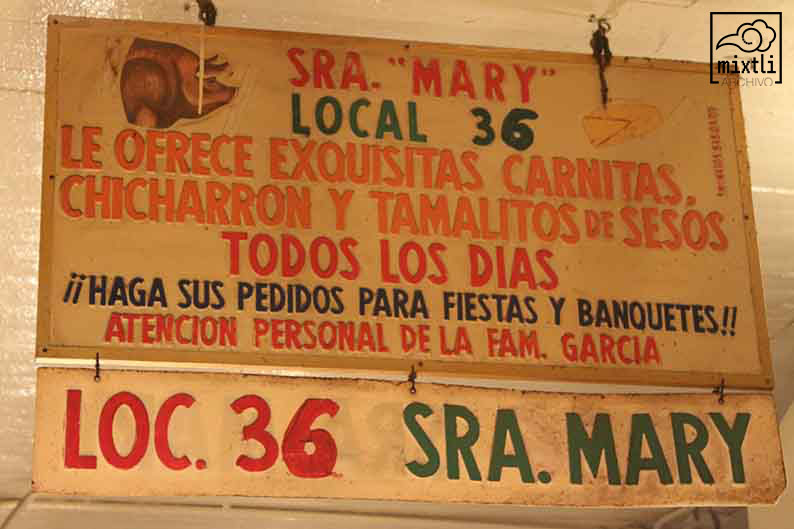 mixtli
ARCHIVO
SRA. "MARY"
LOCAL 36
LE OFRECE EXQUISITAS CARNITAS,
CHICHARRON Y TAMALITOS DE SESOS
TODOS LOS DIAS
¡¡HAGA SUS PEDIDOS PARA FIESTAS Y BANQUETES!!
ATENCION PERSONAL DE LA FAM. GARCIA
LOC. 36 SRA. MARY